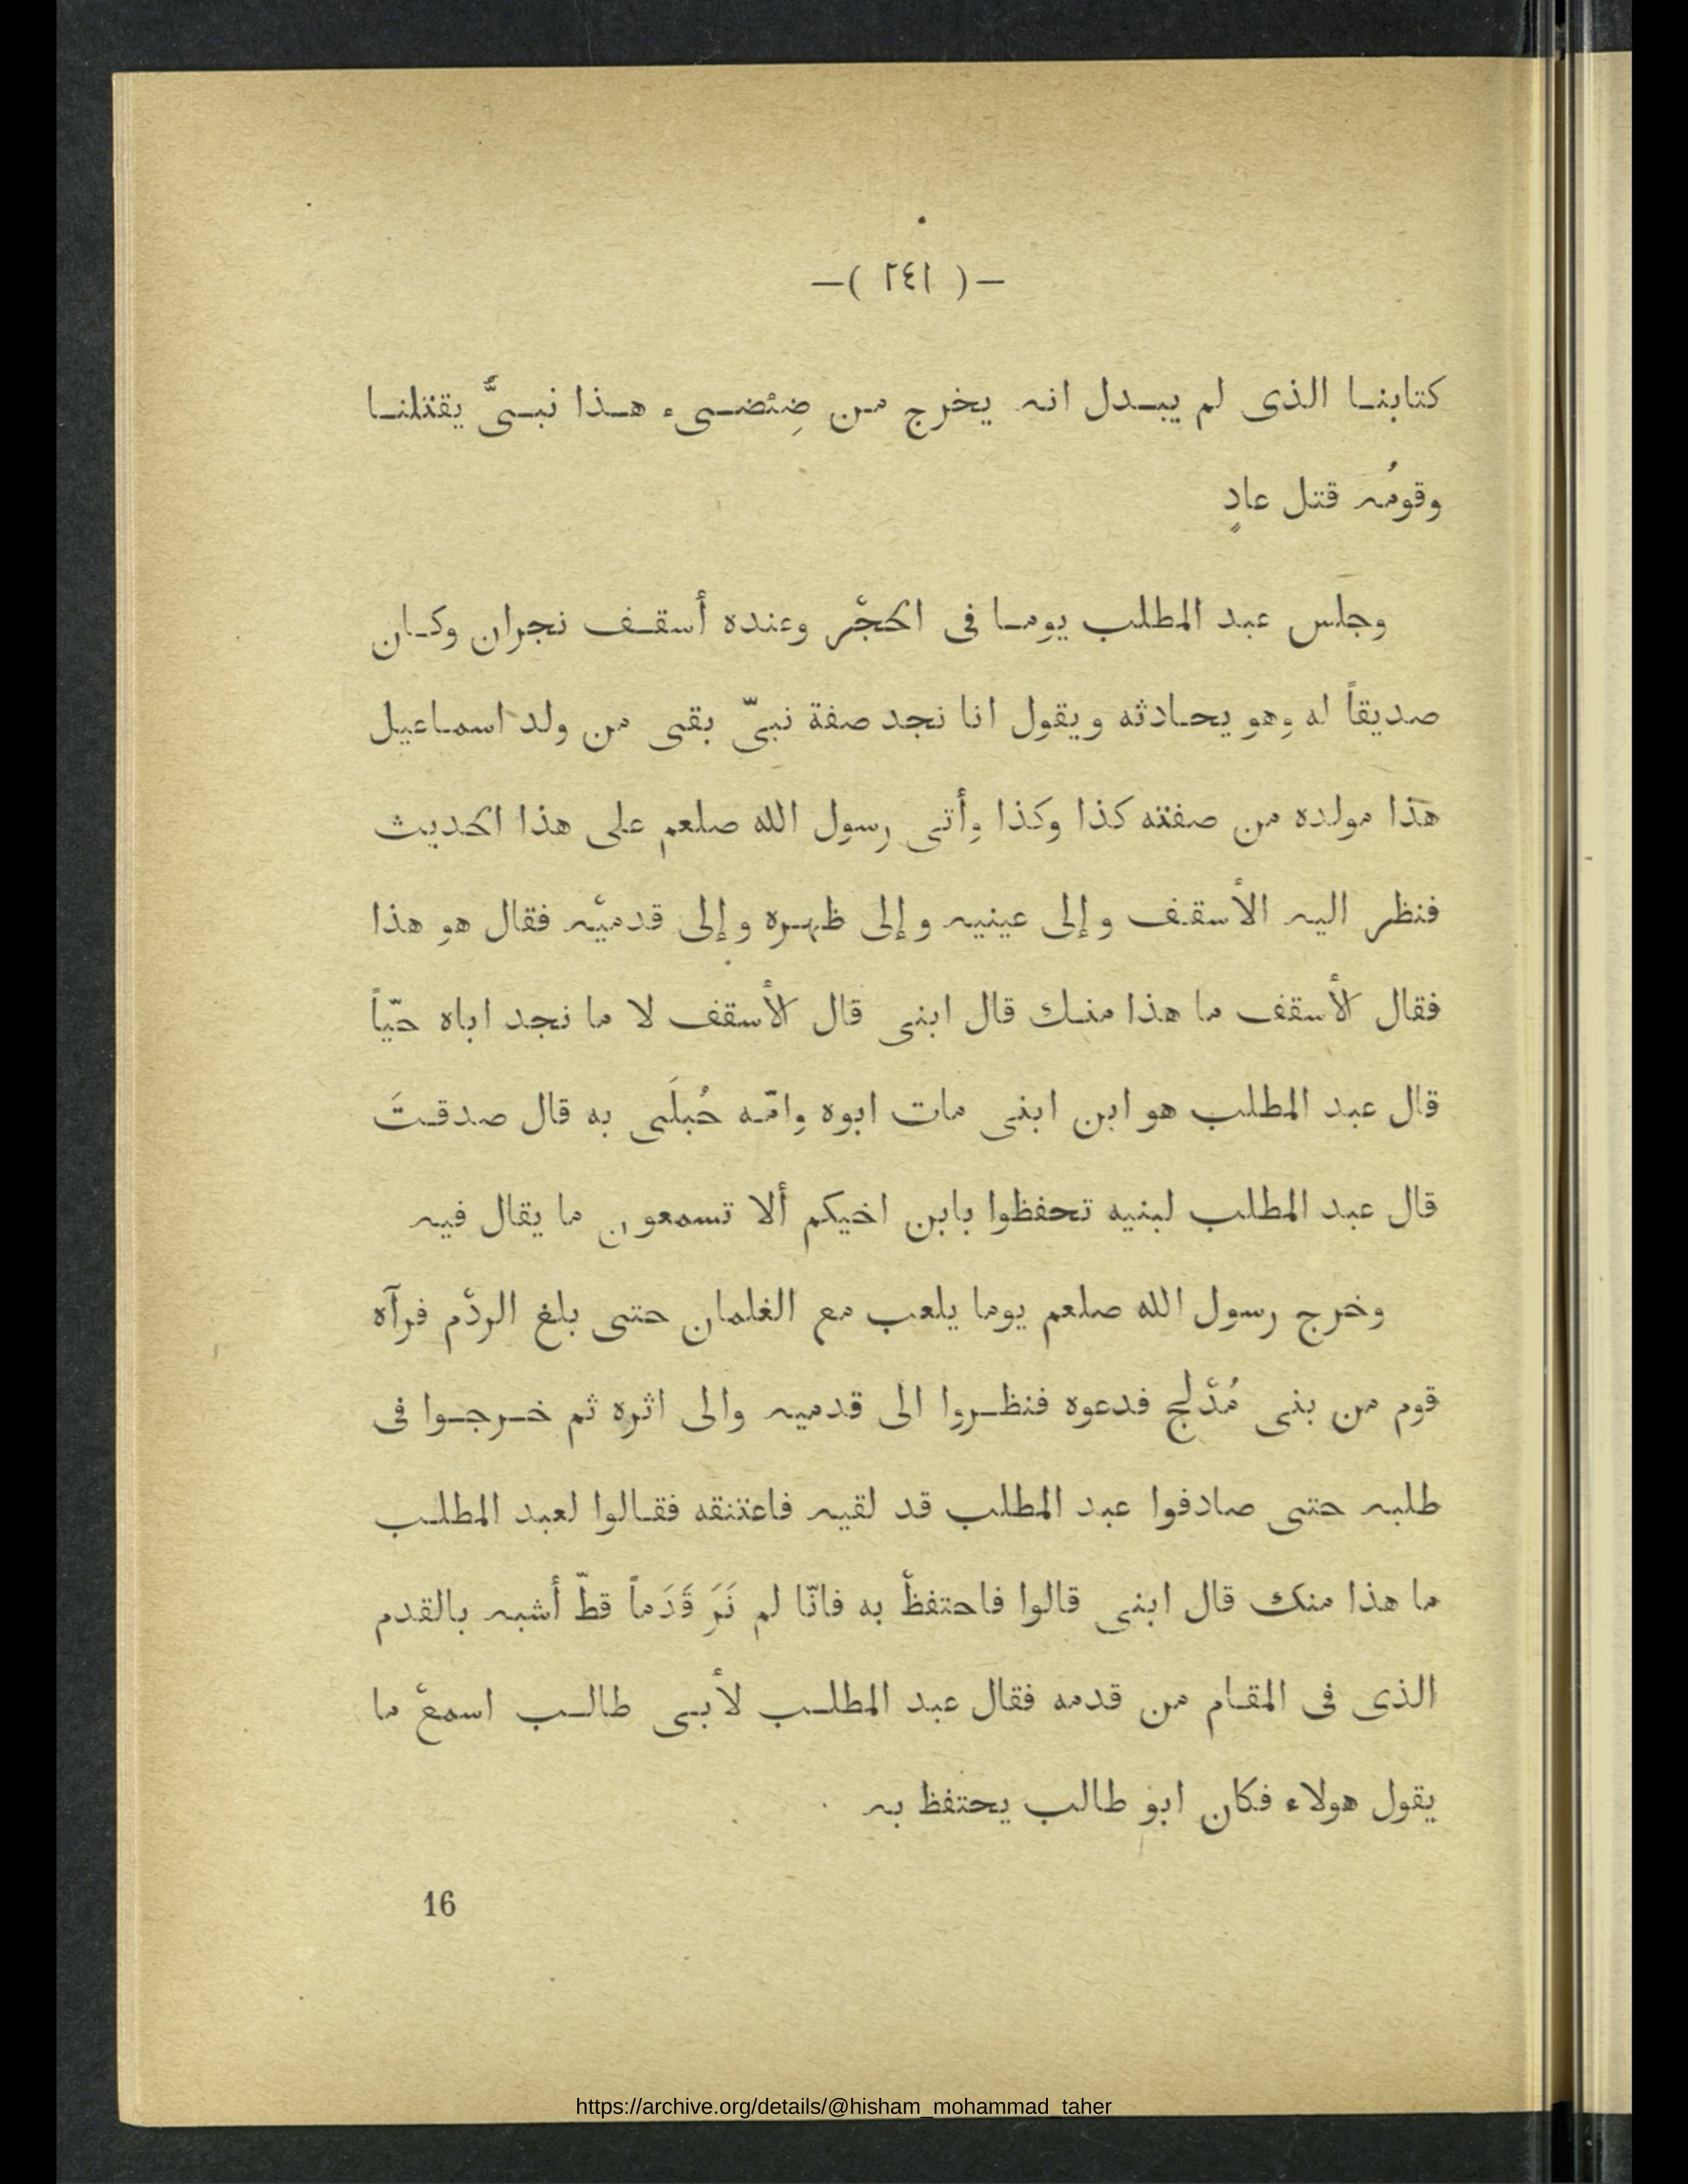 —( ٢٤١ )—
كتابنا الذى لم يبدل انه يخرج من ضِئضىء هذا نبىٌّ يقتلنا
وقومُه قتل عادٍ
وجلس عبد المطلب يوما فى الحجْر وعنده أسقف نجران وكان
صديقاً له وهو يحادثه ويقول انا نجد صفة نبىّ بقى من ولد اسماعيل
هذا مولده من صفته كذا وكذا وأتى رسول الله صلعم على هذا الحديث
فنظر اليه الأسقف وإلى عينيه وإلى ظهره وإلى قدميْه فقال هو هذا
فقال الأسقف ما هذا منك قال ابنى قال الأسقف لا ما نجد اباه حيّاً
قال عبد المطلب هو ابن ابنى مات ابوه وامّه حُبلَى به قال صدقتَ
قال عبد المطلب لبنيه تحفظوا بابن اخيكم ألا تسمعون ما يقال فيه
وخرج رسول الله صلعم يوما يلعب مع الغلمان حتى بلغ الردْم فرآه
قوم من بنى مُدْلج فدعوه فنظروا الى قدميه والى اثره ثم خرجوا فى
طلبه حتى صادفوا عبد المطلب قد لقيه فاعتنقه فقالوا لعبد المطلب
ما هذا منك قال ابنى قالوا فاحتفظْ به فانّا لم نَرَ قَدَماً قطّ أشبه بالقدم
الذى فى المقام من قدمه فقال عبد المطلب لأبى طالب اسمعْ ما
يقول هولاء فكان ابو طالب يحتفظ به
16
https://archive.org/details/@hisham_mohammad_taher